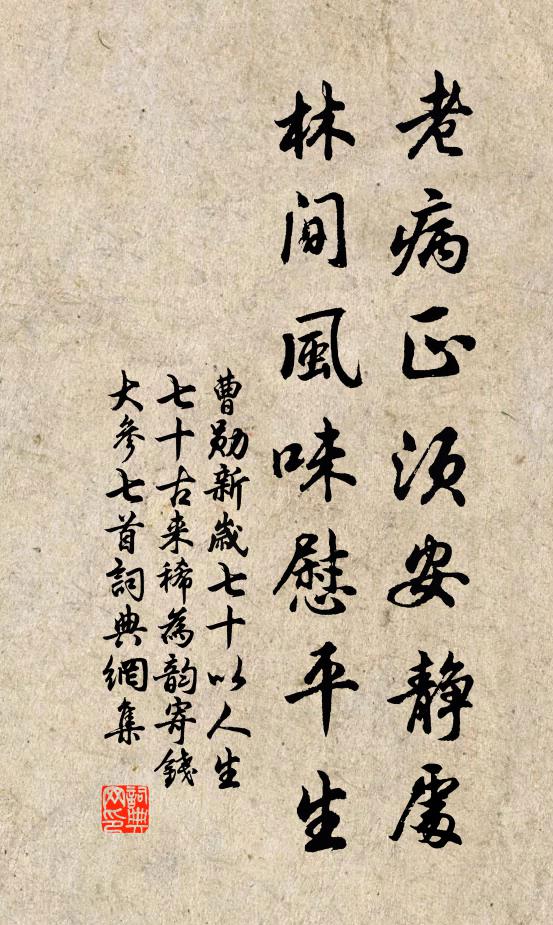 老病正須安静處
林間風味慰平生
曹勛新歲七十以人生
七十古来稀為韵寄錢
大參七首詞典網集
詞典
网印